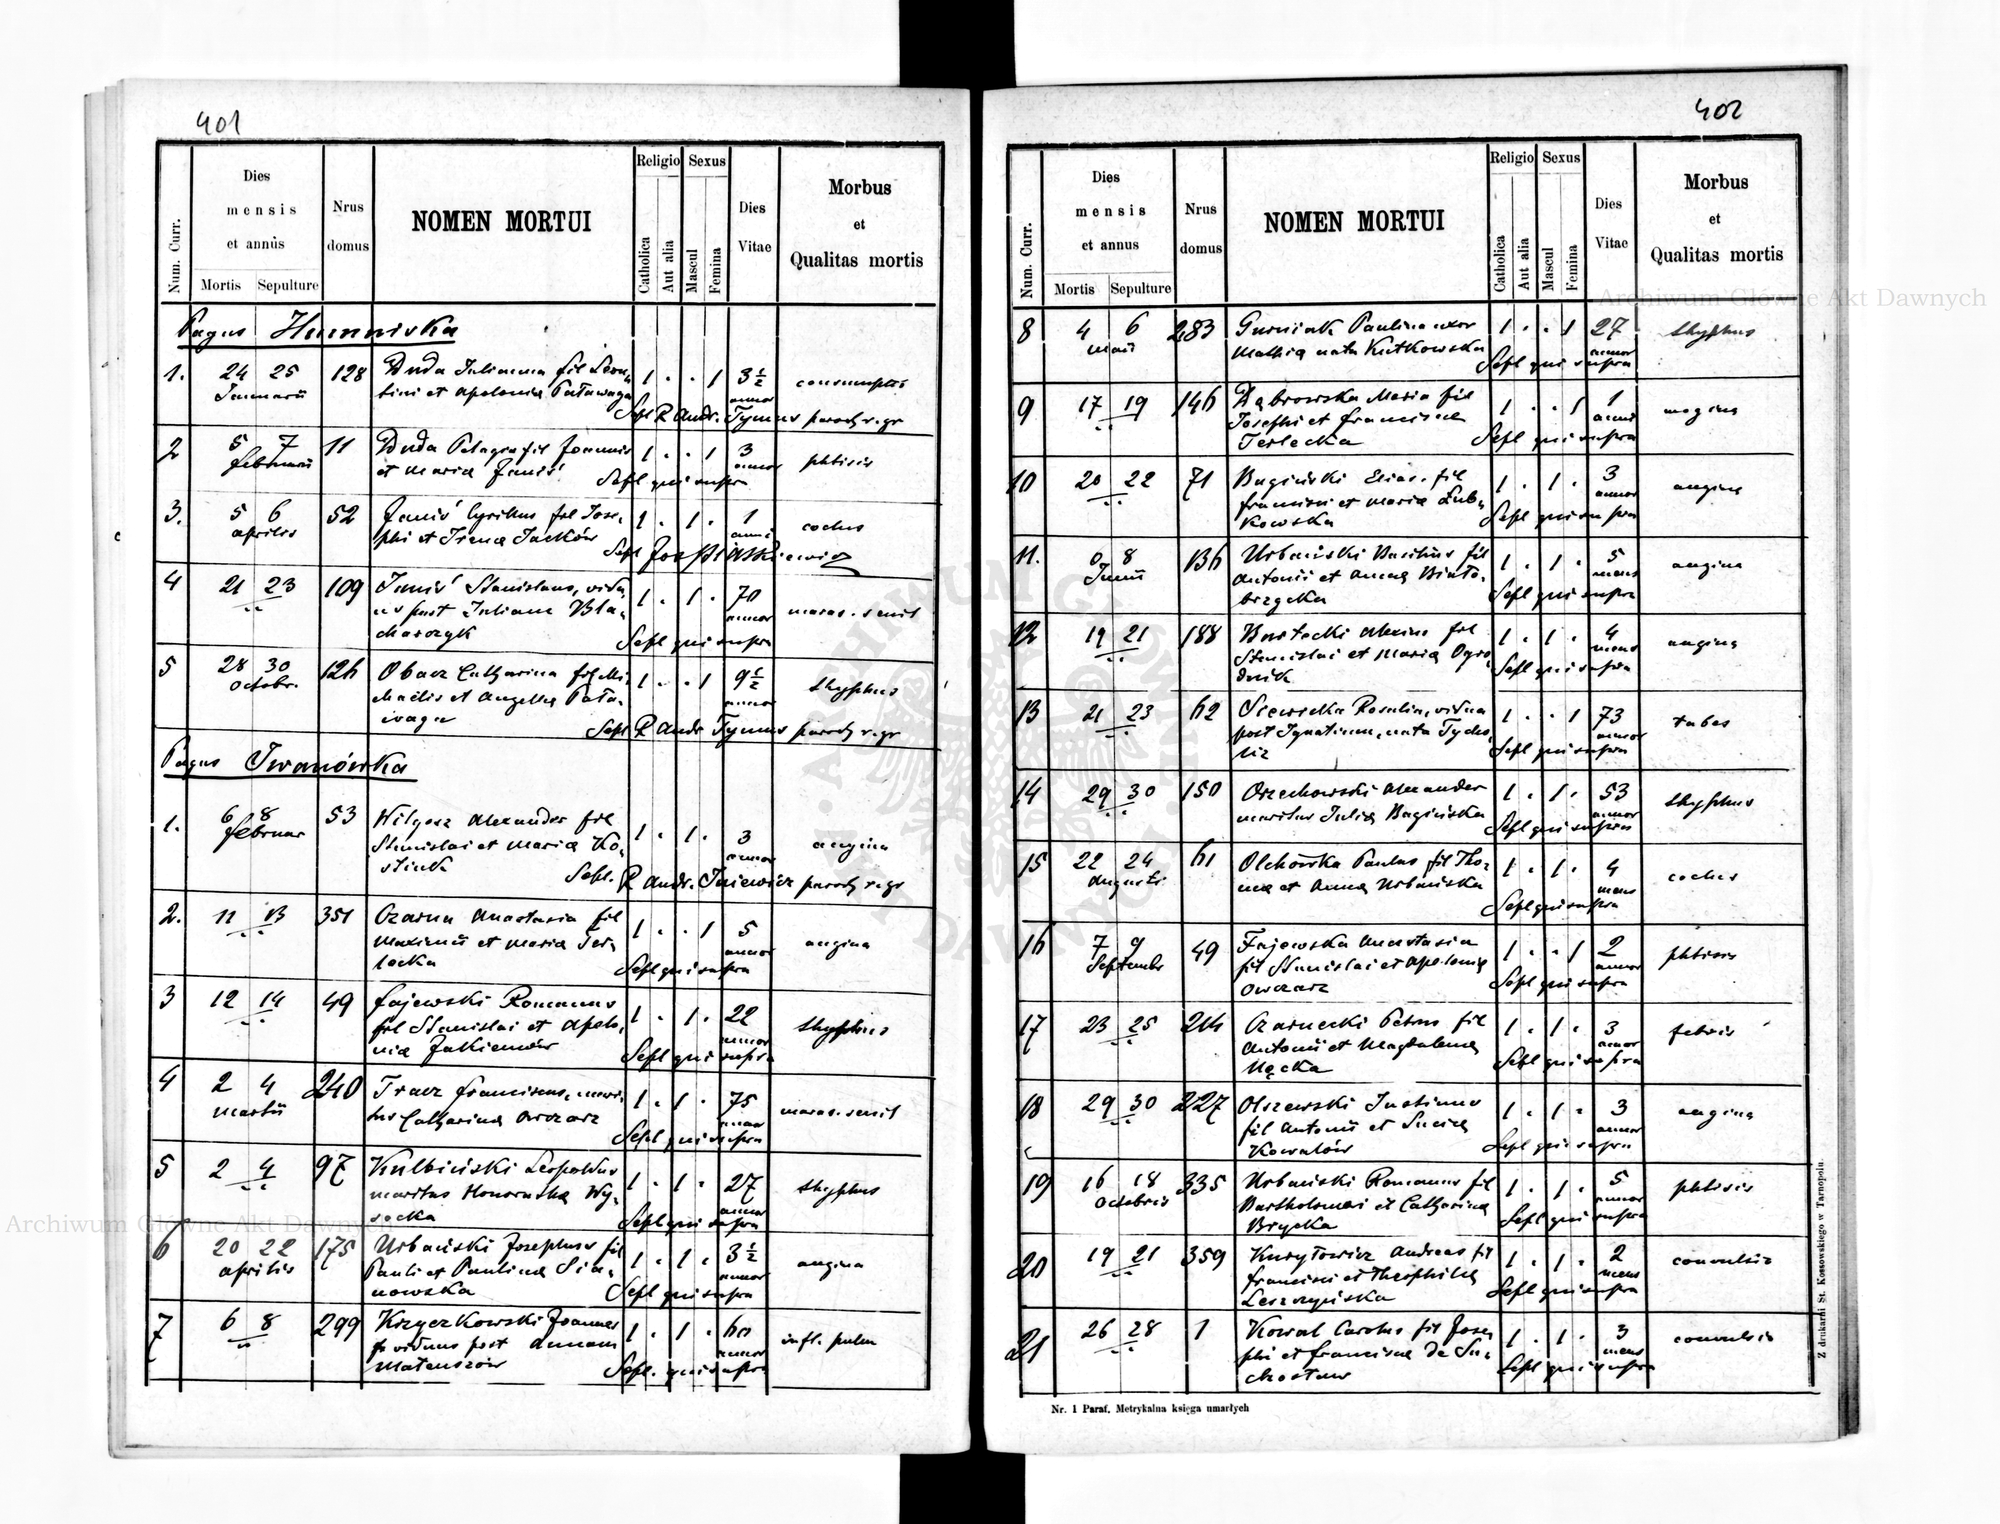 401
Num. Curr.
Dies
mensis
et annus
Mortis
Sepulture
Nrus
domus
NOMEN MORTUI
Religio
Catholica
Aut alia
Sexus
Mascul
Femina
Dies
Vitae
Morbus
et
Qualitas mortis
Pagus
1. 24 25 128 Duda Julianna fil 1 . . 1 3½
Januarii et Apolonia annor
Sepl R Andr. Tymus paroch r. gr
2 5 7 11 Duda fil Joannis 1 . . 1 3 phtisis
februarii et Maria annor
Sepl qui supra
3. 5 6 52 Cyrillus fil Jose- 1 . 1 . 1
aprilis phi et Irena Jacków anni
Sepl Jos
4 21 23 109 Stanislaus, vidu- 1 . 1 . 70 maras. senil
us post Juliana annor
Sepl qui supra
5 28 30 126 Catharina fil Mi- 1 . . 1 9½ thyphus
octobr. chaelis et Angella annor
Sepl R Andr Tymus paroch r. gr
Pagus Iwanówka
1. 6 8 53 Wilgosz Alexander fil 1 . 1 . 3 angina
februar Stanislai et Maria Ko- annor
Sepl. R Andr. paroch r. gr
2. 11 13 351 Czarna Anastasia fil 1 . . 1 5 angina
Maximii et Maria Ter- annor
lecka Sepl qui supra
3 12 14 49 Fajewski Romanus 1 . 1 . 22 thyphus
fil Stanislai et Apolo- annor
nia Sepl qui supra
4 2 4 240 Tracz Franciscus, mari- 1 . 1 . 75 maras. senil
martii tus Catharina Owczarz annor
Sepl qui supra
5 2 4 97 Kulbiński Leopoldus 1 . 1 . 27 thyphus
maritus Honoratha Wy- annor
socka Sepl qui supra
6 20 22 175 Urbański Josephus fil 1 . 1 . 3½ angina
aprilis Pauli et Paulina annor
Sepl qui supra
7 6 8 299 Krzyczkowski Joannes 1 . 1 . 60 infl. pulm
viduus post Annam annor
Mateuszów Sepl. qui supra
402
Num. Curr.
Dies
mensis
et annus
Mortis
Sepulture
Nrus
domus
NOMEN MORTUI
Religio
Catholica
Aut alia
Sexus
Mascul
Femina
Dies
Vitae
Morbus
et
Qualitas mortis
8 4 6 283 Paulina uxor 1 . . 1 27 thyphus
maii Mathia nata Kutkowska annor
Sepl qui supra
9 17 19 146 Dąbrowska Maria fil 1 . . 1 1 angina
Josephi et Francisca anni
Terlecka Sepl qui supra
10 20 22 71 Bagiński Elias. fil 1 . 1 . 3 angina
Francisci et Maria annor
kowska Sepl qui supra
11. 6 8 136 Urbański Basilius fil 1 . 1 . 5 angina
Junii Antonii et Anna Biało- mens
brzycka Sepl qui supra
12 19 21 188 Alexius fil 1 . 1 . 4 angina
Stanislai et Maria Ogro- mens
dnik Sepl qui supra
13 21 23 62 Rosalia, vidua 1 . . 1 73 tabes
post Ignatium, nata annor
Sepl qui supra
14 29 30 150 Orzechowski Alexander 1 . 1 . 53 thyphus
maritus Julia Bagińska annor
Sepl qui supra
15 22 24 61 Paulus fil Tho- 1 . 1 . 4
Augusti ma et Anna Urbańska mens
Sepl qui supra
16 7 9 49 Fajewska Anastasia 1 . . 1 2 phtisis
Septembr fil Stanislai et Apolonia annor
Owczarz Sepl qui supra
17 23 25 214 Czarnecki Petrus fil 1 . 1 . 3 febris
Antonii et Magdalena annor
Mącka Sepl qui supra
18 29 30 227 Olszewski Justinus 1 . 1 . 3 angina
fil Antonii et Lucia annor
Kowalów Sepl qui supra
19 16 18 335 Urbański Romanus fil 1 . 1 . 5 phtisis
octobris Bartholomei et Catharina annor
Sepl qui supra
20 19 21 359 Kuryłowicz Andreas fil 1 . 1 . 2 convulsio
Francisci et Theophila mens
Leszczyńska Sepl qui supra
21 26 28 1 Kowal Carolus fil Jose- 1 . 1 . 3 convulsio
phi et Francisca de Su- mens
Sepl qui supra
Nr. 1 Paraf. Metrykalna księga umarłych
Z drukarni St. Kossowskiego w Tarnopolu.
Archiwum Główne Akt Dawnych
Archiwum Główne Akt Dawnych
ARCHIWUM GŁÓWNE AKT DAWNYCH W